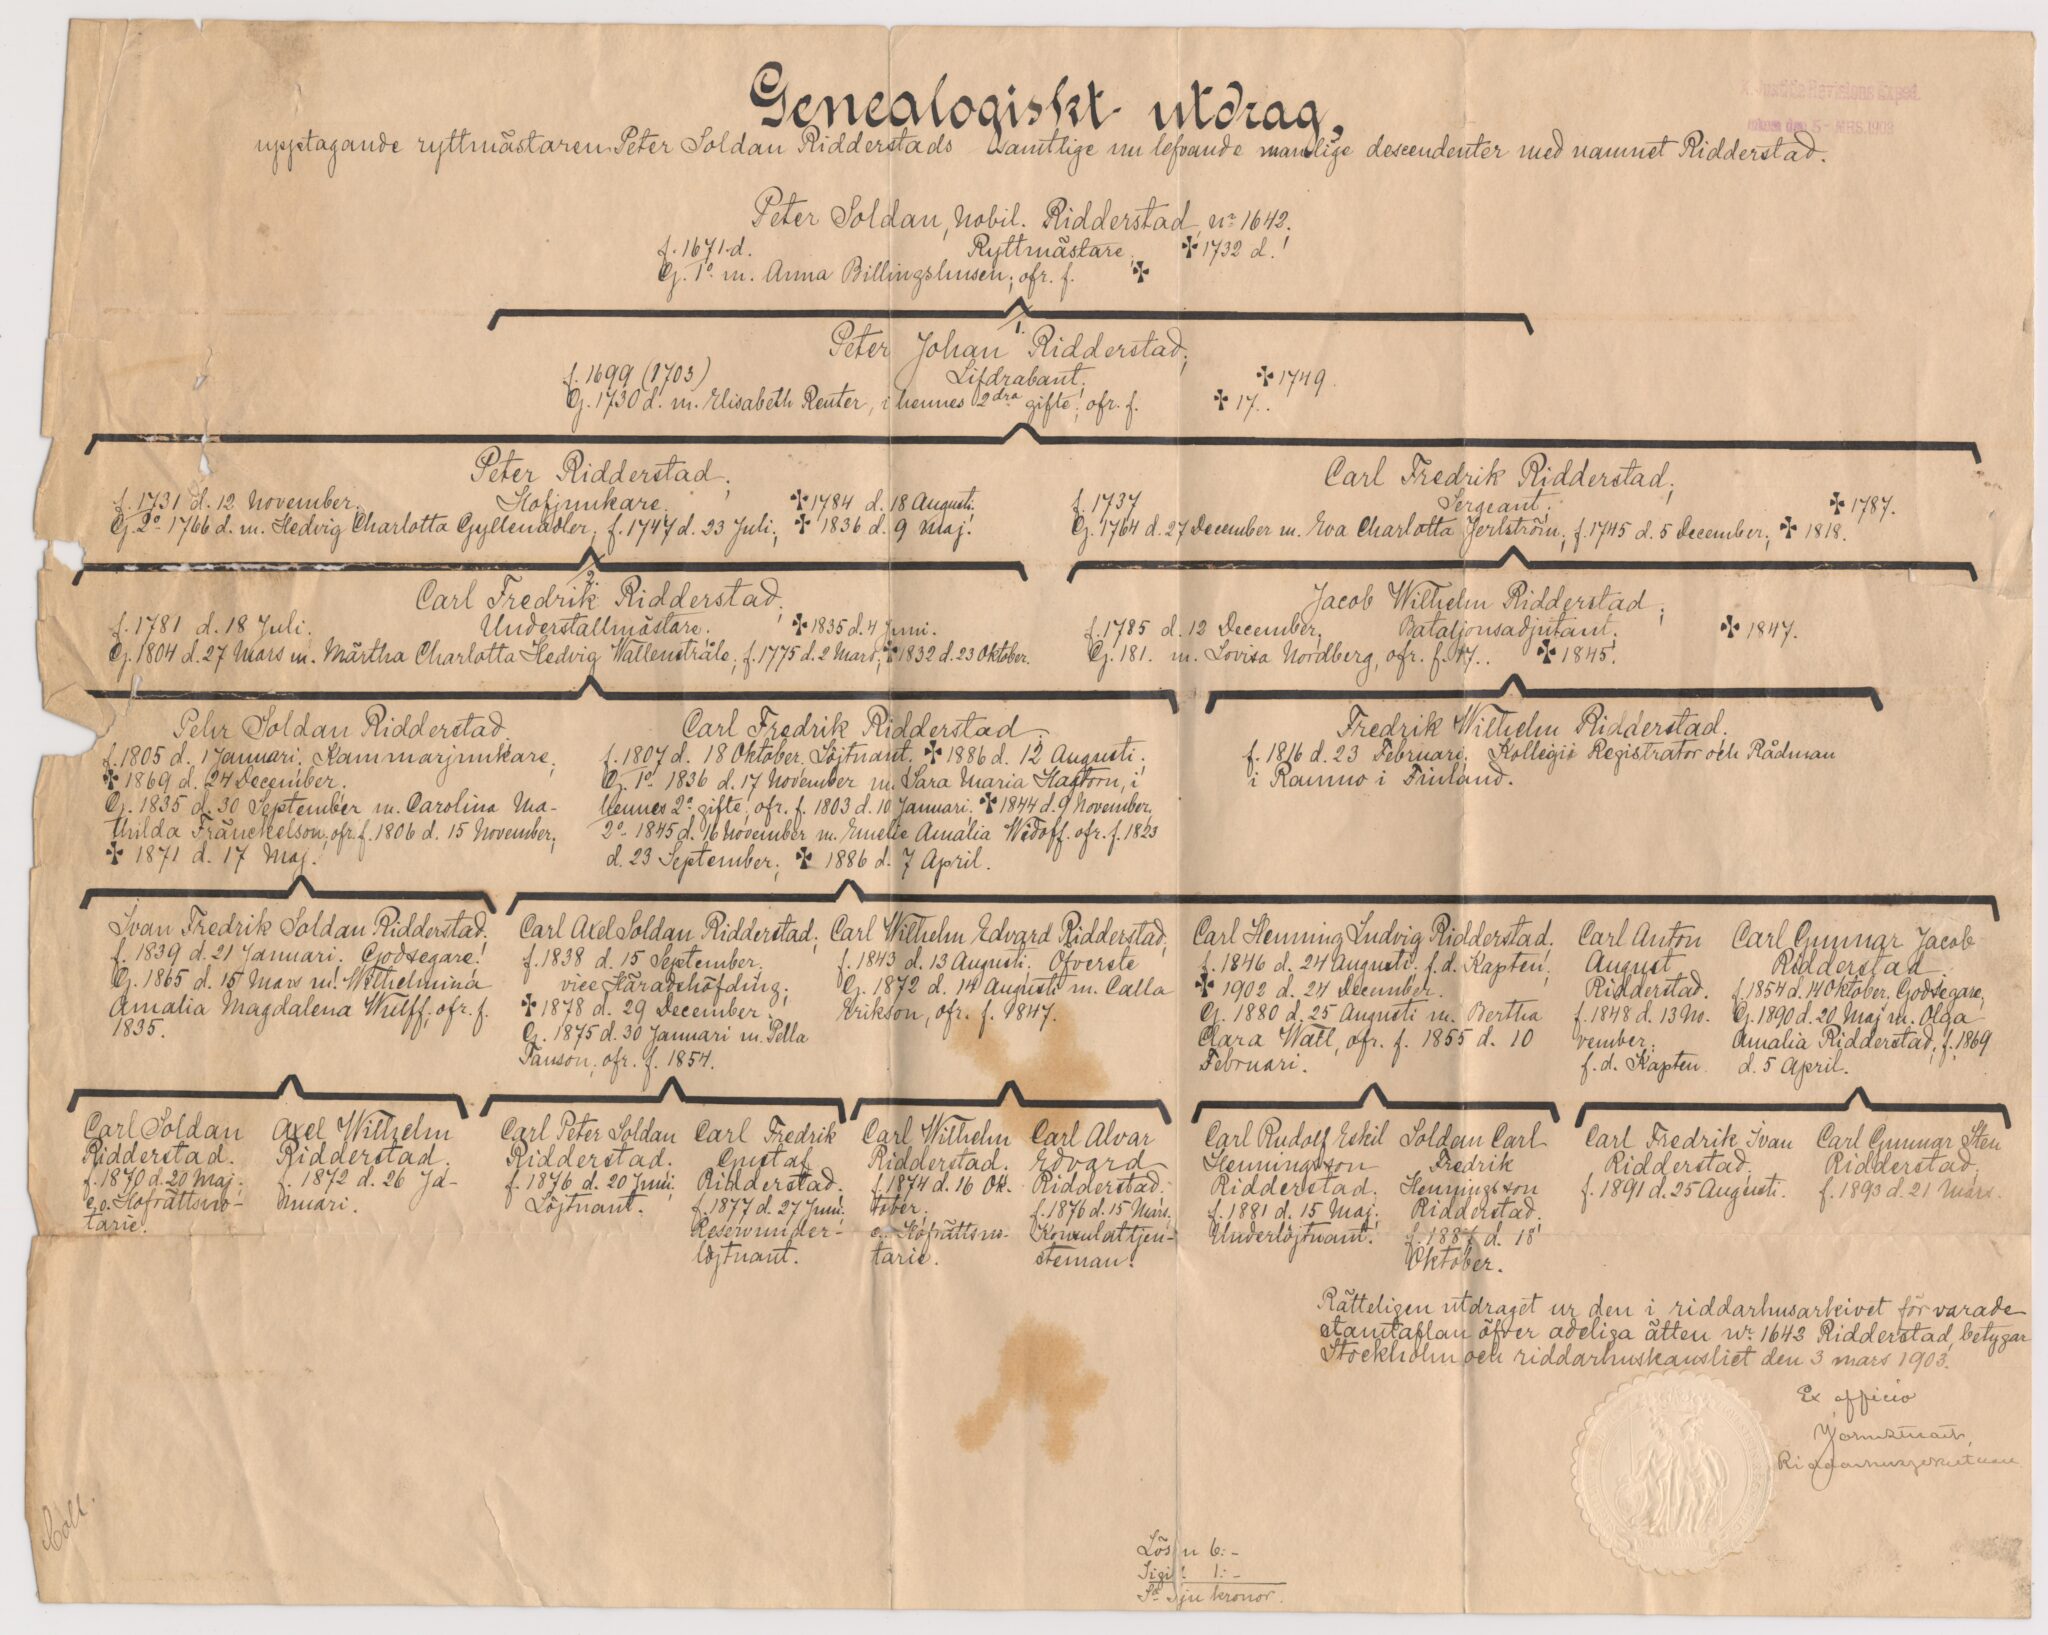 Genealogiskt utdrag,
upptagande ryttmästaren Peter Soldan Ridderstads samtlige nu lefvande manlige descendenter med namnet Ridderstad.
rdsson den 5 - MRS. 1903
Peter Soldan, nobil. Ridderstad, nr 1642.
f. 1671 d. Ryttmästare, ✠ 1732 d.
G. 1o m. Anna Billingshusen; ofr. f. ✠
1.
Peter Johan Ridderstad;
f. 1699 (1703) Lifdrabant; ✠ 1749.
G. 1730 d. m. Elisabeth Reuter, i hennes 2dra gifte; ofr. f. ✠ 17..
Peter Ridderstad;
f. 1731 d. 12 November. Hofjunkare. ✠ 1784 d. 18 Augusti.
G. 2o 1766 d. m. Hedvig Charlotta Gyllenadler; f. 1747 d. 23 Juli; ✠ 1836 d. 9 Maj.
Carl Fredrik Ridderstad;
f. 1737 Sergeant; ✠ 1787.
G. 1764 d. 27 December m. Eva Charlotta Jerlström; f. 1745 d. 5 December; ✠ 1818.
2.
Carl Fredrik Ridderstad;
f. 1781 d. 18 Juli. Understallmästare. ✠ 1835 d. 4 Juni.
G. 1804 d. 27 Mars m. Märtha Charlotta Hedvig Wallenstråle; f. 1775 d. 2 Mars; ✠ 1832 d. 23 Oktober.
Jacob Wilhelm Ridderstad;
f. 1785 d. 12 December. Bataljonsadjutant. ✠ 1847.
G. 181. m. Lovisa Nordberg, ofr. f. 17.. ✠ 1845.
Pehr Soldan Ridderstad.
f. 1805 d. 1 Januari. Kammarjunkare;
✠ 1869 d. 24 December.
G. 1835 d. 30 September m. Carolina Ma-
thilda Fränckelson, ofr. f. 1806 d. 15 November;
✠ 1871 d. 17 Maj.
Carl Fredrik Ridderstad.
f. 1807 d. 18 Oktober. Löjtnant. ✠ 1886 d. 12 Augusti;
G. 1o 1836 d. 17 November m. Sara Maria Hagtorn, i
hennes 2a gifte, ofr. f. 1803 d. 10 Januari; ✠ 1844 d. 9 November,
2o 1845 d. 16 November m. Emelie Amalia Widoff. ofr. f. 1823
d. 23 September; ✠ 1886 d. 7 April.
Fredrik Wilhelm Ridderstad.
f. 1816 d. 23 Februari; Kollegii Registrator och Rådman
i Raumo i Finland.
Ivan Fredrik Soldan Ridderstad.
f. 1839 d. 21 Januari. Godsegare.
G. 1865 d. 15 Mars m. Wilhelmina
Amalia Magdalena Wulff, ofr. f.
1835.
Carl Axel Soldan Ridderstad;
f. 1838 d. 15 September.
vice Häradshöfding;
✠ 1878 d. 29 December.
G. 1875 d. 30 Januari m. Pella
Fanson, ofr. f. 1854.
Carl Wilhelm Edvard Ridderstad;
f. 1843 d. 13 Augusti; Öfverste
G. 1872 d. 14 Augusti m. Calla
Erikson, ofr. f. 1847.
Carl Henning Ludvig Ridderstad.
f. 1846 d. 24 Augusti. f. d. Kapten;
✠ 1902 d. 24 December.
G. 1880 d. 25 Augusti m. Bertha
Clara Wall, ofr. f. 1855 d. 10
Februari.
Carl Anton
August
Ridderstad.
f. 1848 d. 13 No-
vember.
f. d. Kapten
Carl Gunnar Jacob
Ridderstad
f. 1854 d. 14 Oktober. Godsegare;
G. 1890 d. 20 Maj m. Olga
Amalia Ridderstad, f. 1869
d. 5 April.
Carl Soldan
Ridderstad.
f. 1870 d. 20 Maj;
e. o. Hofrättsno-
tarie.
Axel Wilhelm
Ridderstad.
f. 1872 d. 26 Ja-
nuari.
Carl Peter Soldan
Ridderstad.
f. 1876 d. 20 Juni;
Löjtnant.
Carl Fredrik
Gustaf
Ridderstad.
f. 1877 d. 27 Juni;
Reservunder-
löjtnant.
Carl Wilhelm
Ridderstad.
f. 1874 d. 16 Ok-
tober.
e. Hofrättsno-
tarie.
Carl Alvar
Edvard
Ridderstad;
f. 1876 d. 15 Mars.
Konsulattjen-
steman.
Carl Rudolf Eskil
Henningsson
Ridderstad.
f. 1881 d. 15 Maj;
Underlöjtnant.
Soldan Carl
Fredrik
Henningsson
Ridderstad.
f. 1887 d. 18
Oktober.
Carl Fredrik Ivan
Ridderstad.
f. 1891 d. 25 Augusti.
Carl Gunnar Sten
Ridderstad.
f. 1893 d. 21 Mars.
Rätteligen utdraget ur den i riddarhusarkivet förvarade
stamtaflan öfver adeliga ätten nr 1642 Ridderstad, betygar
Stockholm och riddarhuskansliet den 3 mars 1903.
Ex officio
Riddarhussekreterare
Lösen 6:-
Sigill 1:-
Sa Sju kronor.
Coll.